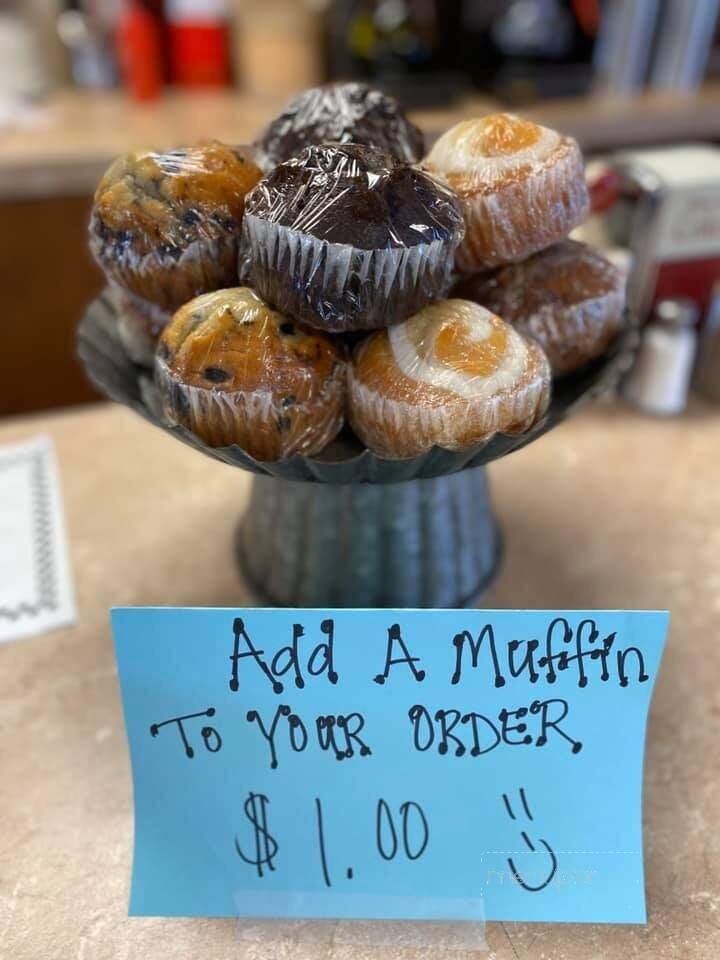 Add A Muffin
To YOUR ORDER
$1.00